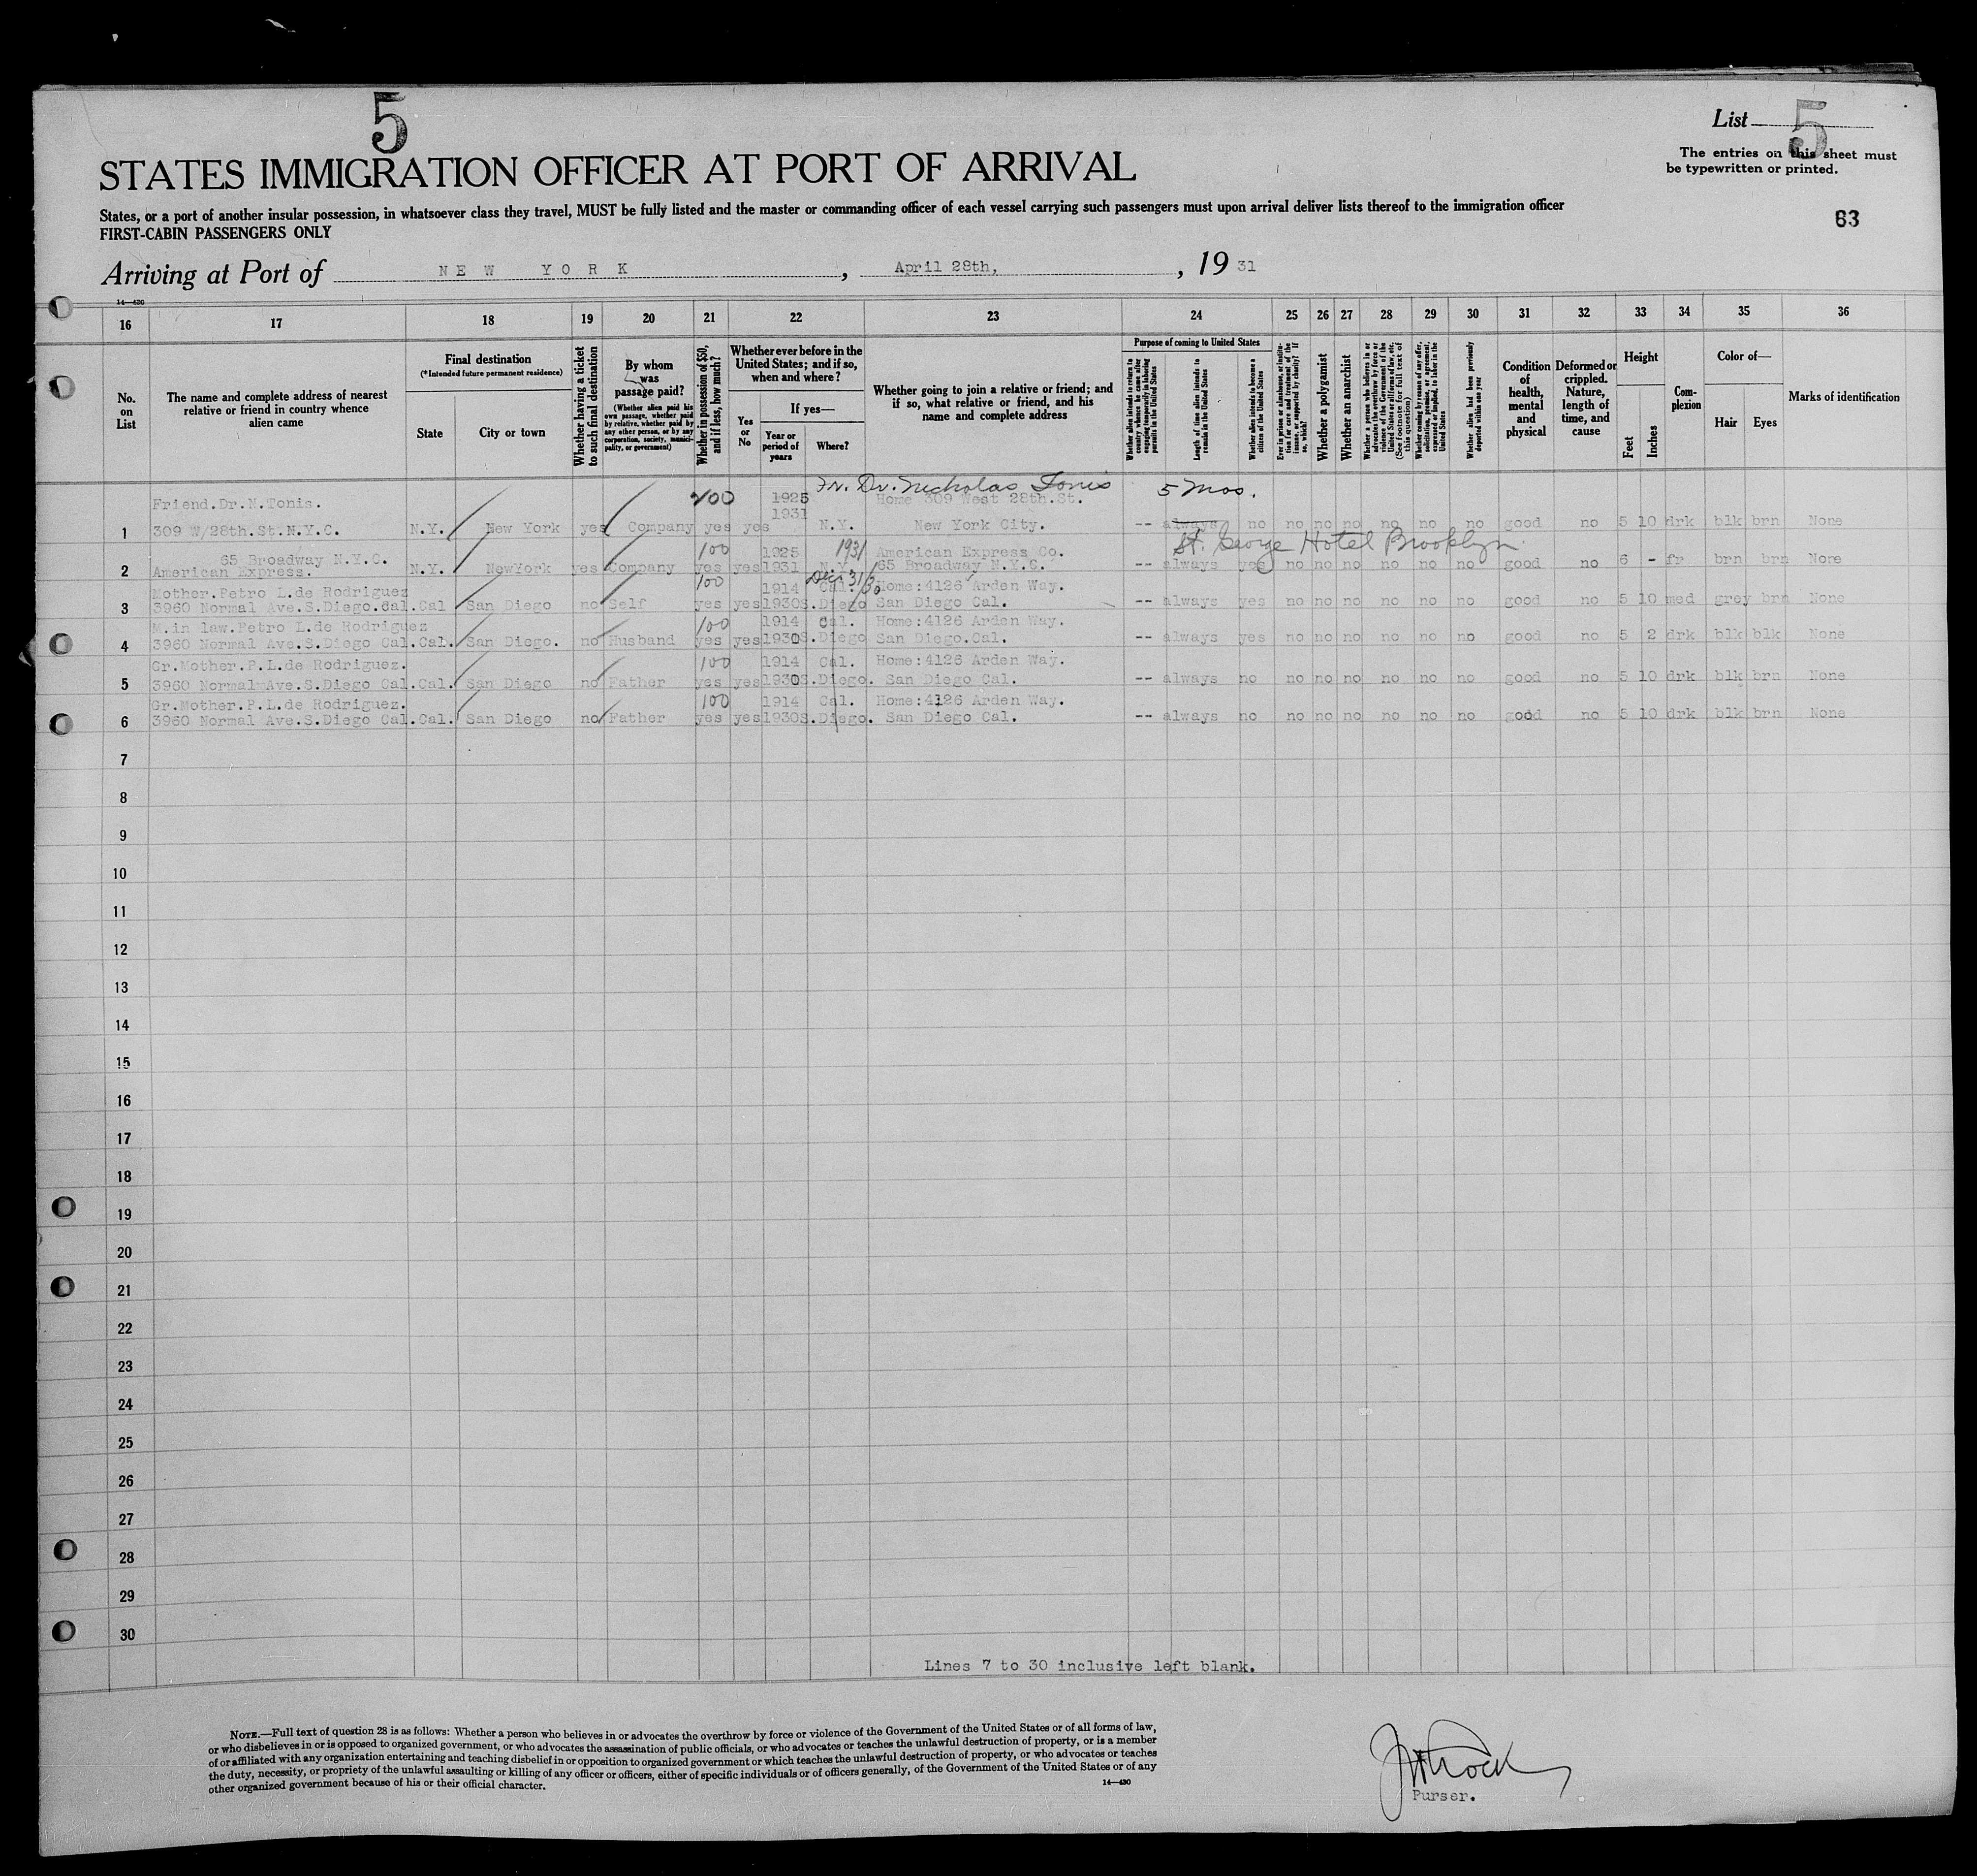 5
List 5
STATES IMMIGRATION OFFICER AT PORT OF ARRIVAL
The entries on this sheet must
be typewritten or printed.
States, or a port of another insular possession, in whatsoever class they travel, MUST be fully listed and the master or commanding officer of each vessel carrying such passengers must upon arrival deliver lists thereof to the immigration officer
FIRST-CABIN PASSENGERS ONLY
63
Arriving at Port of NEW YORK, April 28th, , 19 31
14—430
16 17 18 19 20 21 22 23 24 25 26 27 28 29 30 31 32 33 34 35 36
No. on List
The name and complete address of nearest relative or friend in country whence alien came
Final destination
(*Intended future permanent residence)
State
City or town
Whether having a ticket to such final destination
By whom was passage paid?
(Whether alien paid his own passage, whether paid by relative, whether paid by any other person, or by any corporation, society, municipality, or government)
Whether in possession of $50, and if less, how much?
Whether ever before in the United States; and if so, when and where?
Yes or No
If yes—
Year or period of years
Where?
Whether going to join a relative or friend; and if so, what relative or friend, and his name and complete address
Purpose of coming to United States
Whether alien intends to return to country whence he came after engaging temporarily in laboring pursuits in the United States
Length of time alien intends to remain in the United States
Whether alien intends to become a citizen of the United States
Ever in prison or almshouse, or institution for care and treatment of the insane, or supported by charity? If so, which?
Whether a polygamist
Whether an anarchist
Whether a person who believes in or advocates the overthrow by force or violence of the Government of the United States or all forms of law, etc. (See footnote for full text of this question)
Whether coming by reason of any offer, solicitation, promise, or agreement, expressed or implied, to labor in the United States
Whether alien had been previously deported within one year
Condition of health, mental and physical
Deformed or crippled. Nature, length of time, and cause
Height
Feet
Inches
Complexion
Color of—
Hair
Eyes
Marks of identification
Fr. Dr. Nicholas Tonis 5 Mos.
Friend.Dr.N.Tonis. 200 1925 Home 309 West 28th.St.
1931
1 309 W/28th.St.N.Y.C. N.Y. New York yes Company yes yes N.Y. New York City. -- always no no no no no no no good no 5 10 drk blk brn None
65 Broadway N.Y.C. 100 1925 1931 American Express Co. St. George Hotel Brooklyn
2 American Express. N.Y. NewYork yes Company yes yes 1931 N.Y. 65 Broadway N.Y.C. -- always yes no no no no no no good no 6 - fr brn brn None
Mother.Petro L.de Rodriguez 100 1914 Cal. Dec 31/30 Home:4126 Arden Way.
3 3960 Normal Ave.S.Diego.Cal. Cal San Diego no Self yes yes 1930 S.Diego San Diego Cal. -- always yes no no no no no no good no 5 10 med grey brn None
M.in law.Petro L.de Rodriguez 100 1914 Cal. Home:4126 Arden Way.
4 3960 Normal Ave.S.Diego Cal. Cal. San Diego. no Husband yes yes 1930 S.Diego San Diego.Cal. -- always yes no no no no no no good no 5 2 drk blk blk None
Gr.Mother.P.L.de Rodriguez. 100 1914 Cal. Home:4126 Arden Way.
5 3960 Normal Ave.S.Diego Cal. Cal. San Diego no Father yes yes 1930 S.Diego. San Diego Cal. -- always no no no no no no no good no 5 10 drk blk brn None
Gr.Mother.P.L.de Rodriguez. 100 1914 Cal. Home:4126 Arden Way.
6 3960 Normal Ave.S.Diego Cal. Cal. San Diego no Father yes yes 1930 S.Diego. San Diego Cal. -- always no no no no no no no good no 5 10 drk blk brn None
7
8
9
10
11
12
13
14
15
16
17
18
19
20
21
22
23
24
25
26
27
28
29
30
Lines 7 to 30 inclusive left blank.
NOTE.—Full text of question 28 is as follows: Whether a person who believes in or advocates the overthrow by force or violence of the Government of the United States or of all forms of law,
or who disbelieves in or is opposed to organized government, or who advocates the assassination of public officials, or who advocates or teaches the unlawful destruction of property, or is a member
of or affiliated with any organization entertaining and teaching disbelief in or opposition to organized government or which teaches the unlawful destruction of property, or who advocates or teaches
the duty, necessity, or propriety of the unlawful assaulting or killing of any officer or officers, either of specific individuals or of officers generally, of the Government of the United States or of any
other organized government because of his or their official character.
14—430
Purser.